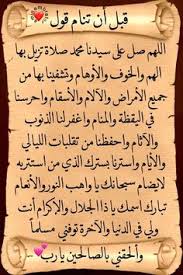 قبل أن تنام قول
اللهم صل على سيدنا محمد صلاة تزيل بها
الهم والخوف والأوهام وتشفينا بها من
جميع الأمراض والآلام والأسقام واحرسنا
في اليقظة والمنام واغفر لنا الذنوب
والآثام واحفظنا من تقلبات الليالي
والأيام واسترنا بسترك الذي من استتر به
لا يضام سبحانك يا واهب النور والأنعام
تبارك اسمك يا ذا الجلال والإكرام أنت
ولي في الدنيا والآخرة توفني مسلماً
وألحقني بالصالحين يا رب